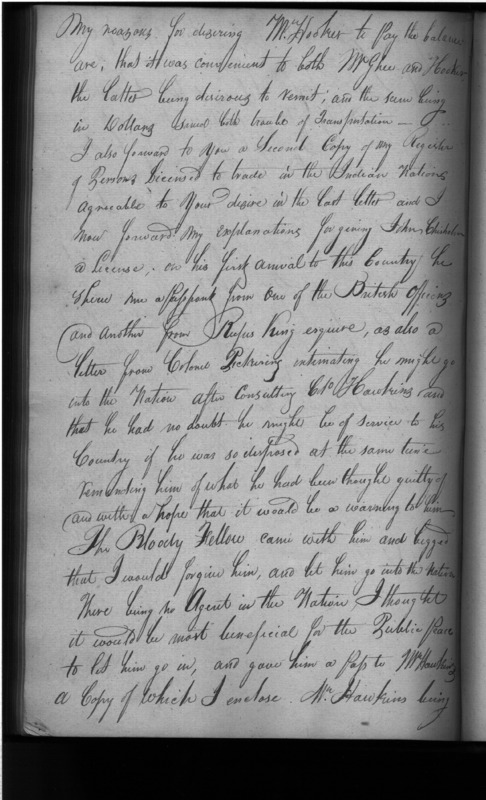 My reasons for desiring Mr. Hooker to pay the balance
are; that it was convenient to both McGhee and Hooker
the latter being desirous to remit; and the sum being
in Dollars saved both trouble of Transportation —
I also forward to you a Second Copy of my Register
of Persons Licensed to trade in the Indian Nations
agreeable to Your desire in the last letter and I
now forward my explanations for giving John Chisholm
a License; on his first arrival to this Country he
Shew me a passport from one of the British Officers
and another from Rufus King esquire, as also a
letter from Colonel Pickering intimating he might go
into the Nation after Consulting Colo. Hawkins and
that he had no doubt he might be of service to his
Country if he was so disposed at the same time
reminding him of what he had been thought guilty of
and with a hope that it would be a warning to him
The Bloody Fellow came with him and begged
that I would forgive him, and let him go into the Nation
There being no Agent in the Nation I thought
it would be most beneficial for the Public peace
to let him go in, and gave him a pass to Mr. Hawkins
a Copy of which I enclose. Mr. Hawkins being